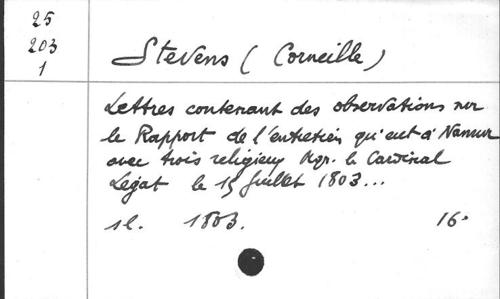 25
203
1
Stevens (Corneille)
Lettres contenant des observations sur
le Rapport de l'entretien qu'eut à Namur
avec trois religieux Mgr. le Cardinal
Legat le 15 Juillet 1803...
sl. 1803. 16°